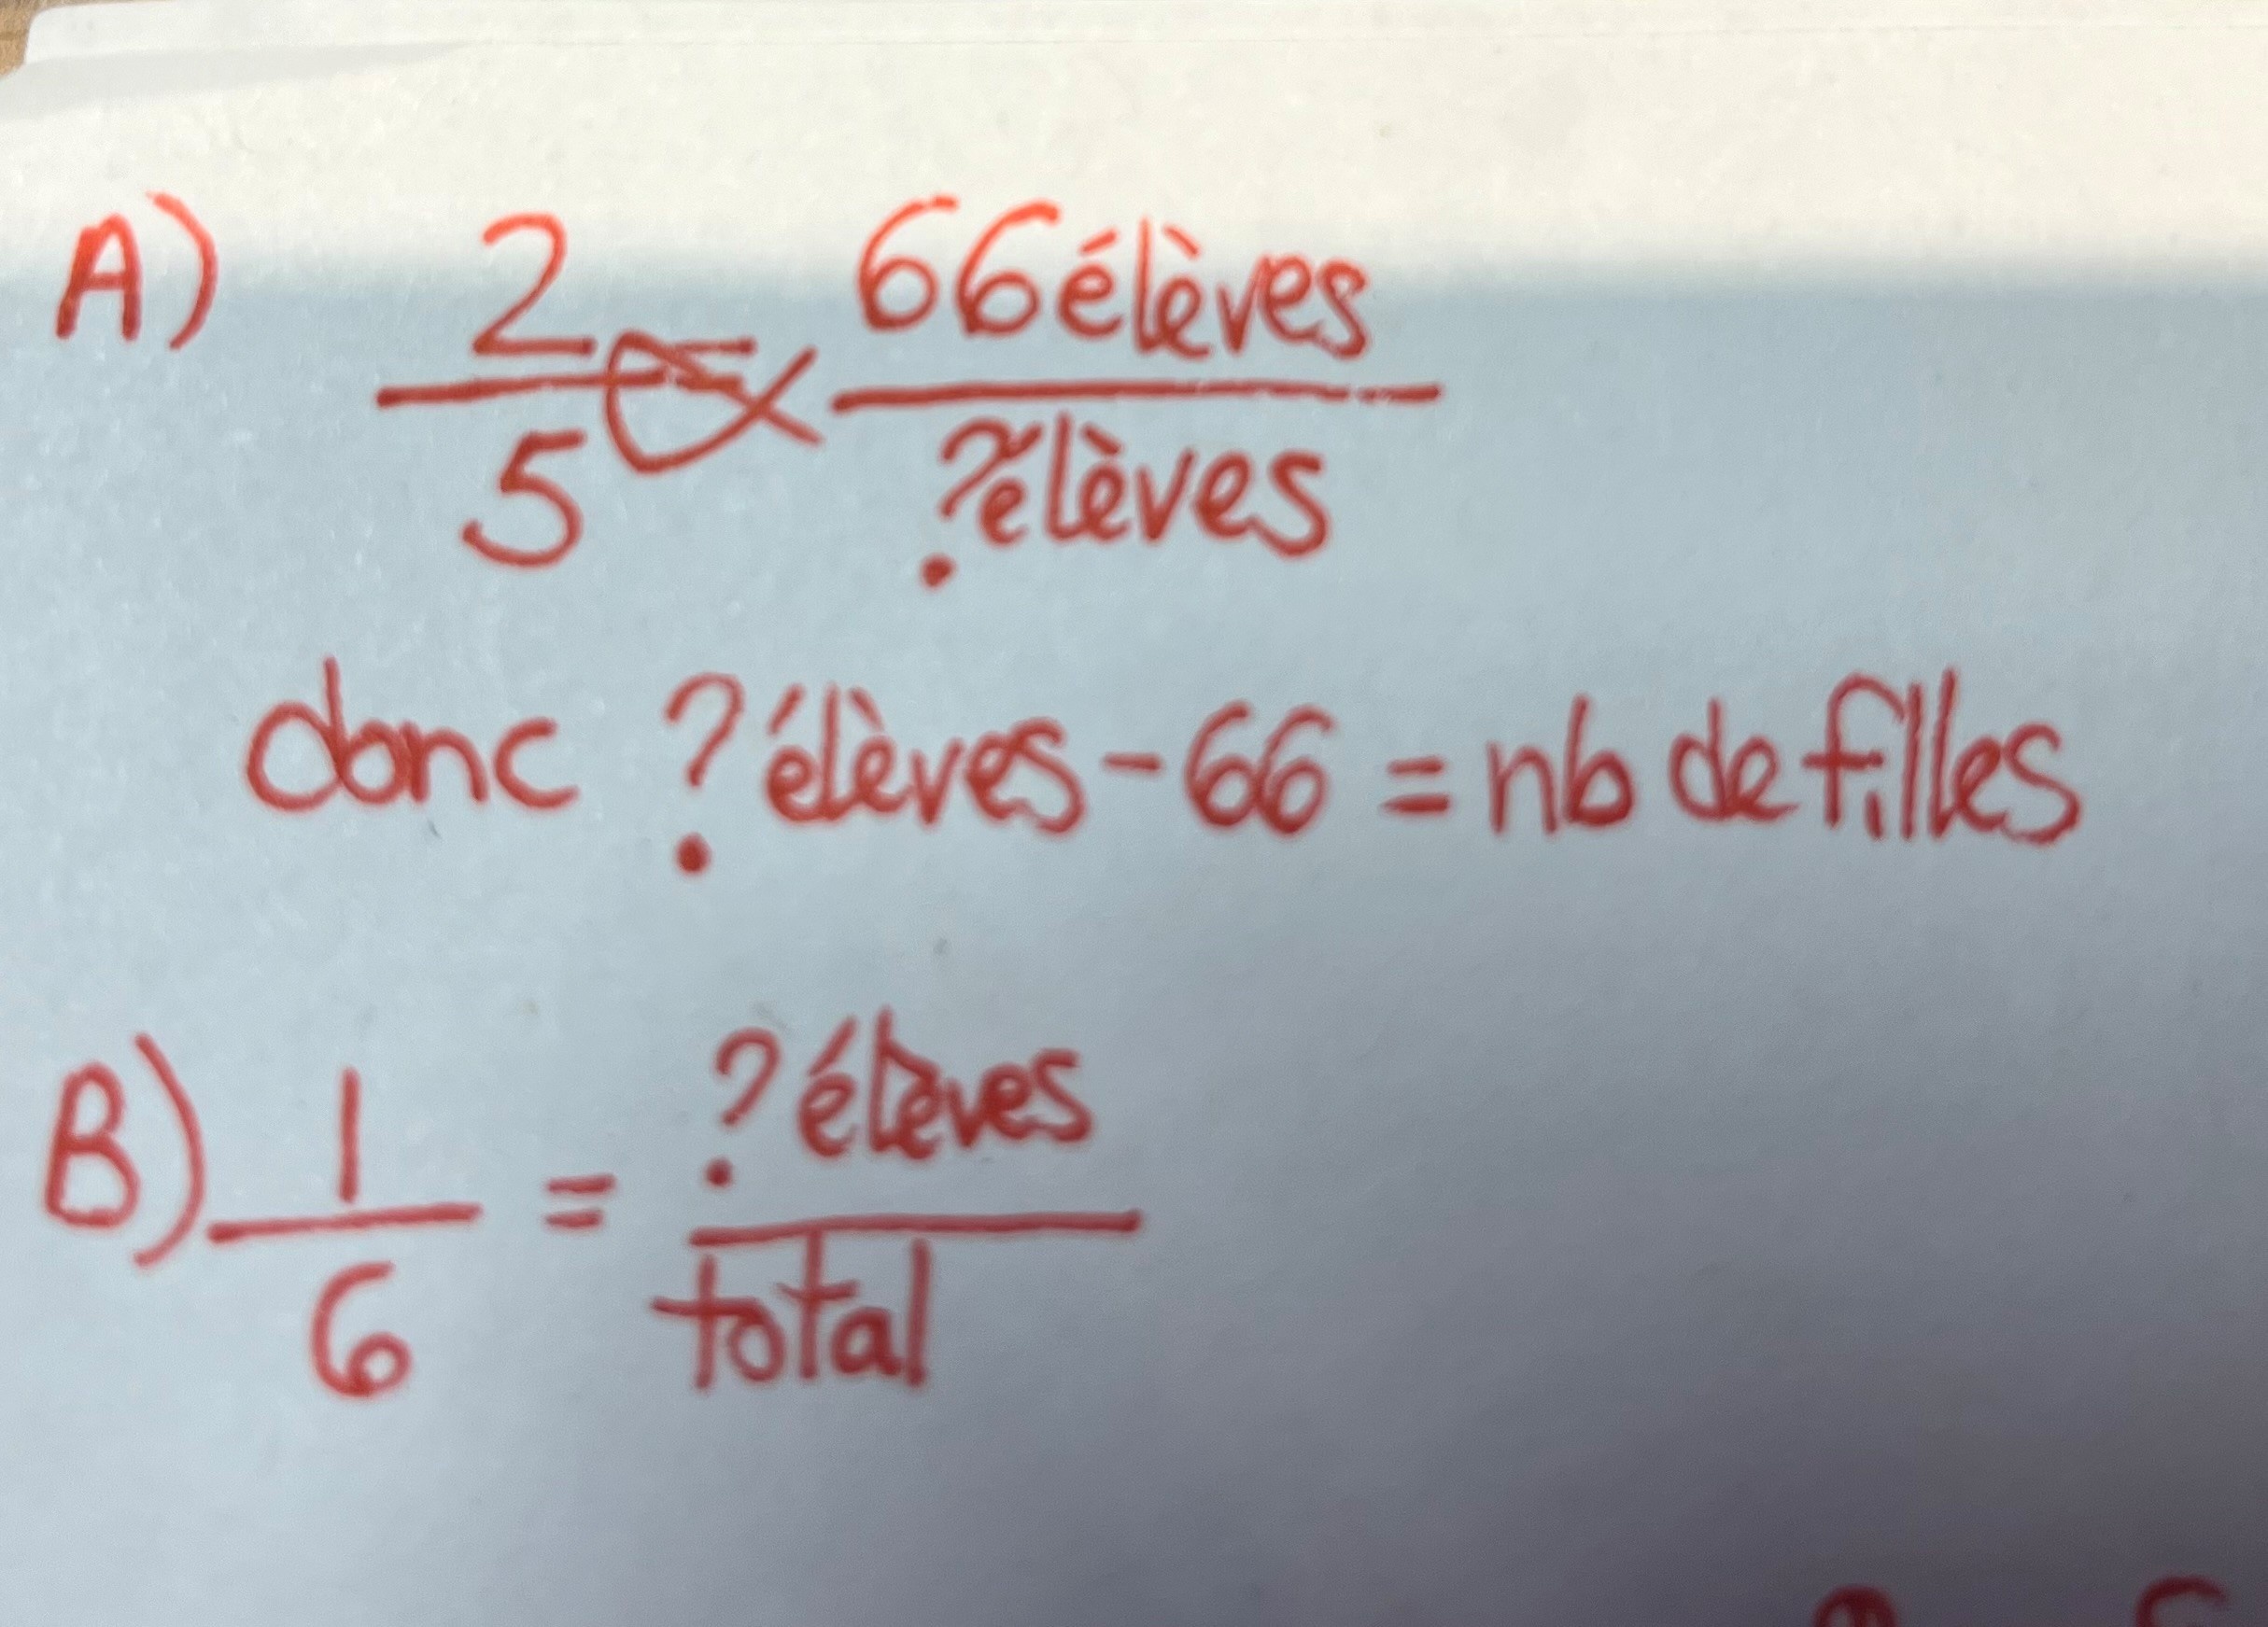 A) 2/5 = 66 élèves/? élèves
donc ? élèves - 66 = nb de filles
B) 1/6 = ? élèves/total